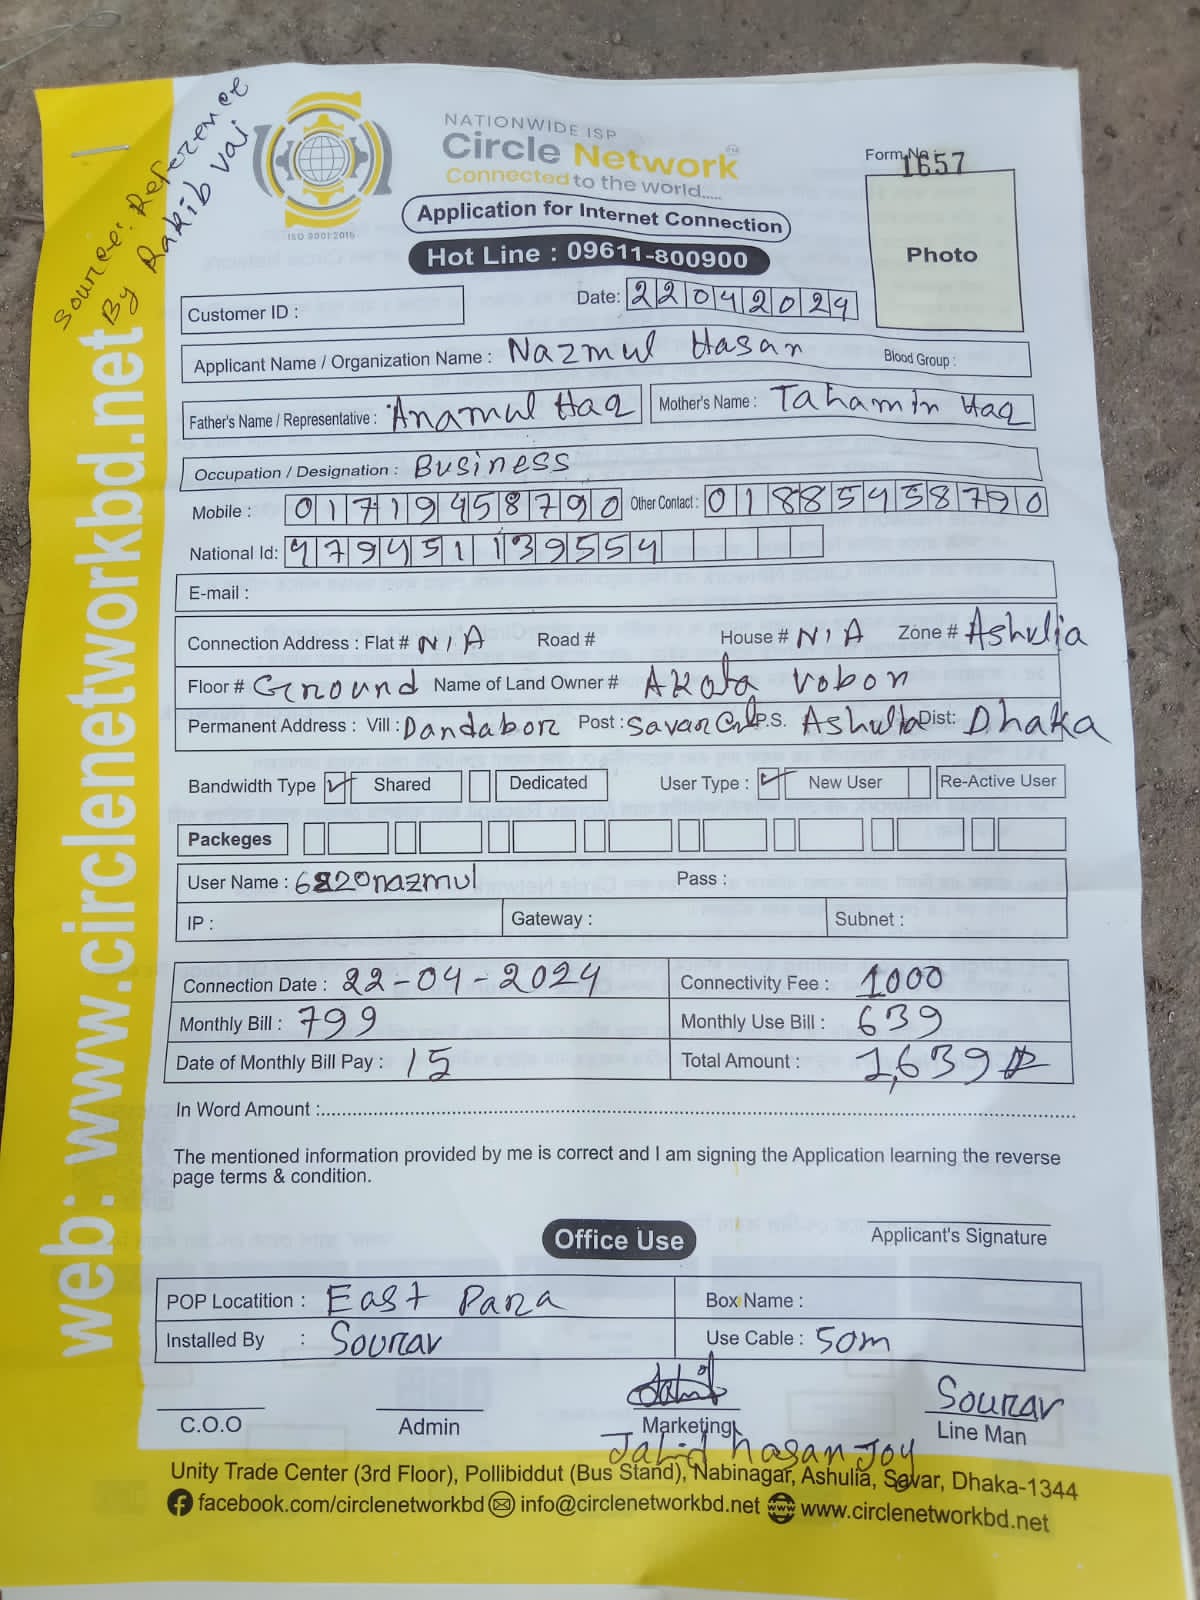 Source: Reference
By Rakib vai
web: www.circlenetworkbd.net
NATIONWIDE ISP
Circle Network
Connected to the world.....
ISO 9001:2015
Application for Internet Connection
Hot Line : 09611-800900
Form No : 1657
Photo
Customer ID :
Date: 22042024
Applicant Name / Organization Name : Nazmul Hasan Blood Group :
Father's Name / Representative : Anamul Haq Mother's Name : Tahamin Haq
Occupation / Designation : Business
Mobile : 01719458790 Other Contact : 01885458790
National Id: 4794511139554
E-mail :
Connection Address : Flat # N/A Road # House # N/A Zone # Ashulia
Floor # Ground Name of Land Owner # AKota vobon
Permanent Address : Vill : Dandabor Post : Savar P.S. Ashulia Dist: Dhaka
Bandwidth Type Shared Dedicated User Type : New User Re-Active User
Packeges
User Name : 6220nazmul Pass :
IP : Gateway : Subnet :
Connection Date : 22-04-2024 Connectivity Fee : 1000
Monthly Bill : 799 Monthly Use Bill : 639
Date of Monthly Bill Pay : 15 Total Amount : 1,639
In Word Amount :
The mentioned information provided by me is correct and I am signing the Application learning the reverse
page terms & condition.
Applicant's Signature
Office Use
POP Locatition : East Para Box Name :
Installed By : Sourav Use Cable : 50m
Sourav
C.O.O Admin Marketing Line Man
Jahid hasan Joy
Unity Trade Center (3rd Floor), Pollibiddut (Bus Stand), Nabinagar, Ashulia, Savar, Dhaka-1344
facebook.com/circlenetworkbd info@circlenetworkbd.net www.circlenetworkbd.net